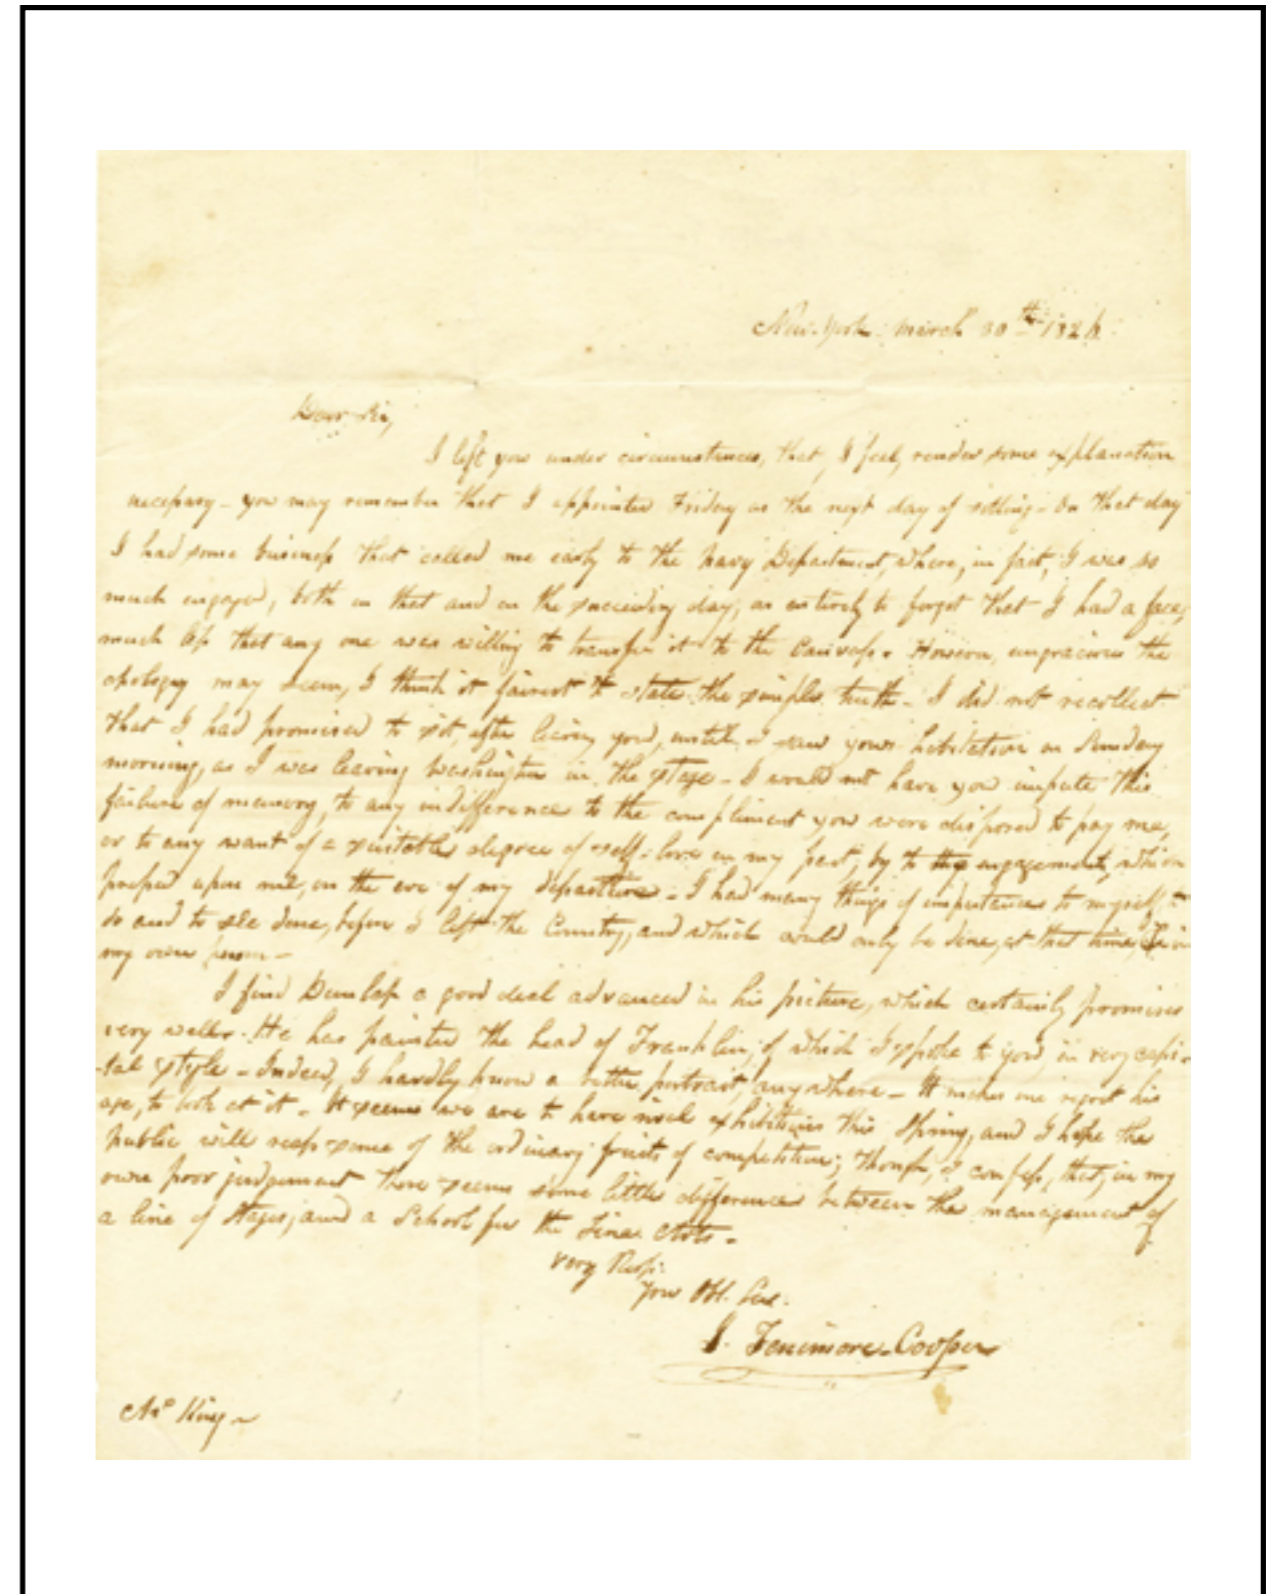 New-York. March 30th 1826.
Dear Sir,
I left you under circumstances, that, I feel, render some explanation
necessary - you may remember that I appointed Friday as the next day of sitting - On that day
I had some business that called me early to the Navy Department, where, in fact, I was so
much engaged, both on that and on the succeeding day, as entirely to forget that I had a face,
much less that any one was willing to transfer it to the Canvass. However, ungracious the
apology may seem, I think it fairest to state the simple truth - I did not recollect
that I had promised to sit, after leaving you, until I saw your habitation on Sunday
morning, as I was leaving Washington in the stage - I would not have you impute this
failure of memory, to any indifference to the compliment you were disposed to pay me,
or to any want of a suitable degree of self-love on my part, by to the engagements, which
pressed upon me, on the eve of my departure - I had many things of importance to myself, to
do and to see done, before I left the Country, and which could only be done, at that time, in
my own person -
I find Dunlap a good deal advanced in his picture, which certainly promises
very well. He has painted the head of Franklin, of which I spoke to you, in very capi-
-tal style - Indeed, I hardly know a better portrait, any where - It makes me regret his
age, to look at it - It seems we are to have rival exhibitions this Spring, and I hope the
public will reap some of the ordinary fruits of competition; though, I confess, that, in my
own poor judgement there seems some little difference between the management of
a line of Stages, and a School for the Fine Arts -
Very Resp:
Your Obl. Ser.
J. Fenimore Cooper
Mr King -